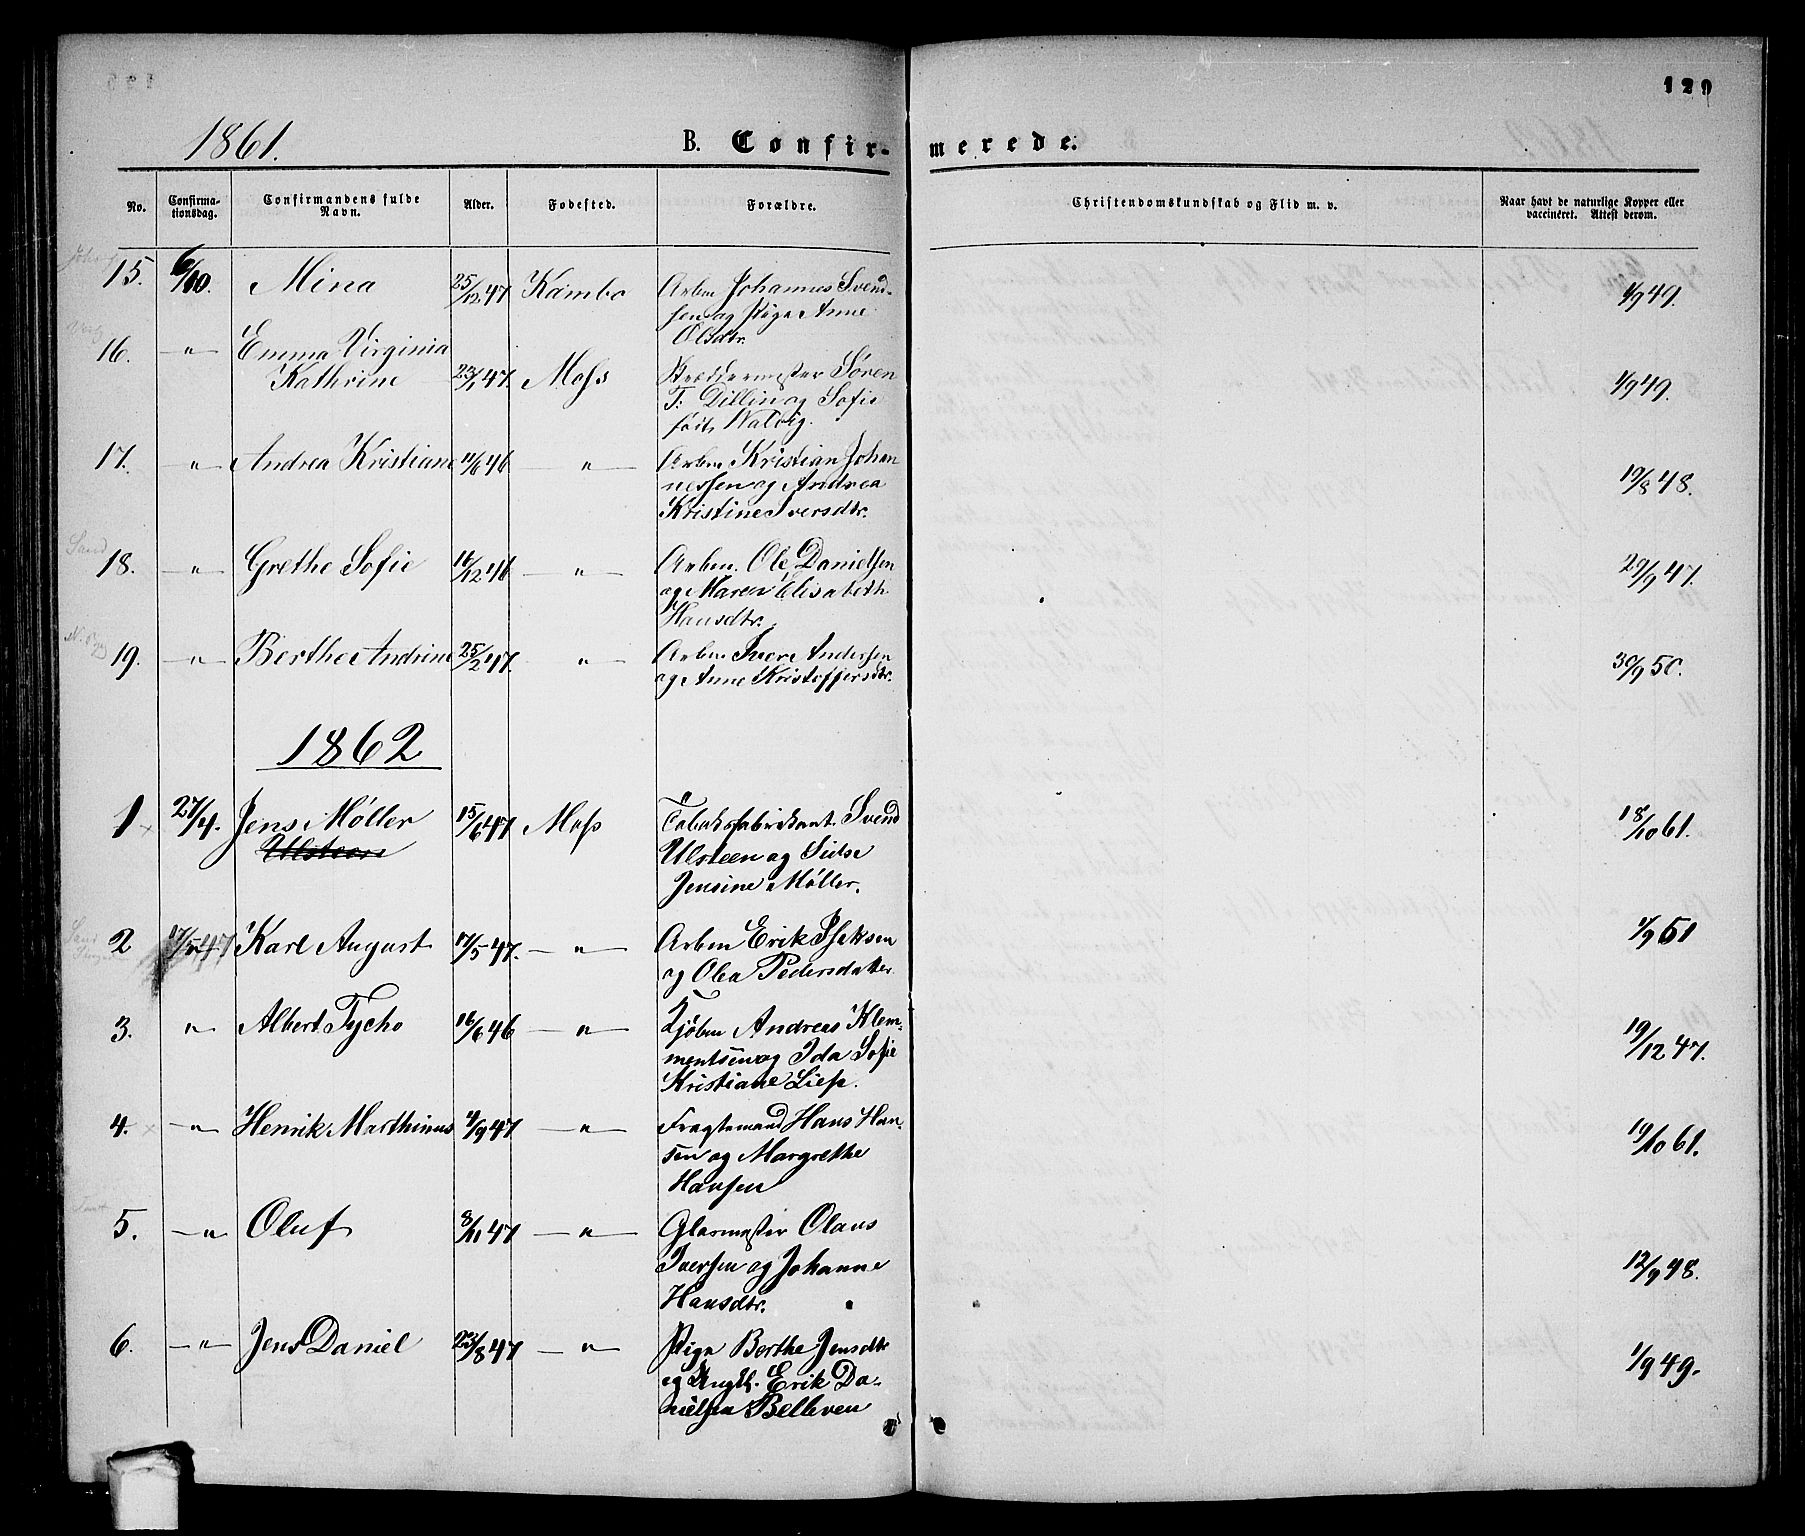 129
1861.
B. Confir-
merede.
No.
Confirma-
tionsdag.
Confirmandens fulde
Navn.
Alder.
Fødested.
Forældre.
Christendomskundskab og Flid m. v.
Naar havt de naturlige Kopper eller
vaccineret. Attest derom.
15. 6/10. Mina 25/12 47 Kambo Arbm Johannes Svend-
sen og Pige Anne
Olsdtr.
1/9 49.
16. " Emma Virginia
Kathrine 23/1 47. Moss Skræddermester Søren
T. Dillin og Sofie
født
1/9 49.
17. " Andrea Kristiane 11/6 46 " Arbm Kristian Johan
nessen og Andrea
Kristine Iversdtr.
19/8 48.
18. " Grethe Sofie 16/12 46 " Arbm. Ole Danielsen
og Maren Elisabeth
Hansdtr.
29/9 47.
19. " Berthe Andrine 25/2 47. " Arbm Iver Andersen
og Anne Kristoffersdtr.
30/9 50.
1862
1 27/4. Jens Møller
Ulsteen 15/6 47 Moss Tobaksfabrikant Svend
Ulsteen og Sidse
Jensine Møller.
18/10 61.
2 17/5 47 Karl August 17/5 47. " Arbm Erik Isaksen
og Olea Pedersdatter
1/9 51
3. " Albert Tycho 16/6 46 " Kjøbm Andreas Klem-
mentsen og Ida Sofie
Kristiane Liess.
19/12 47.
4. " Henrik Marthinus 4/9 47 " Fragtemand Hans Han-
sen og Margrethe
Hansen
19/10 61.
5. " Oluf 8/11 47 " Glasmester Olaus
Iversen og Johanne
Hansdtr.
12/9 48.
6. " Jens Daniel 23/8 47 " Pige Berthe Jensdtr
og Ungk. Erik Da-
nielsen Belleven
1/9 49.